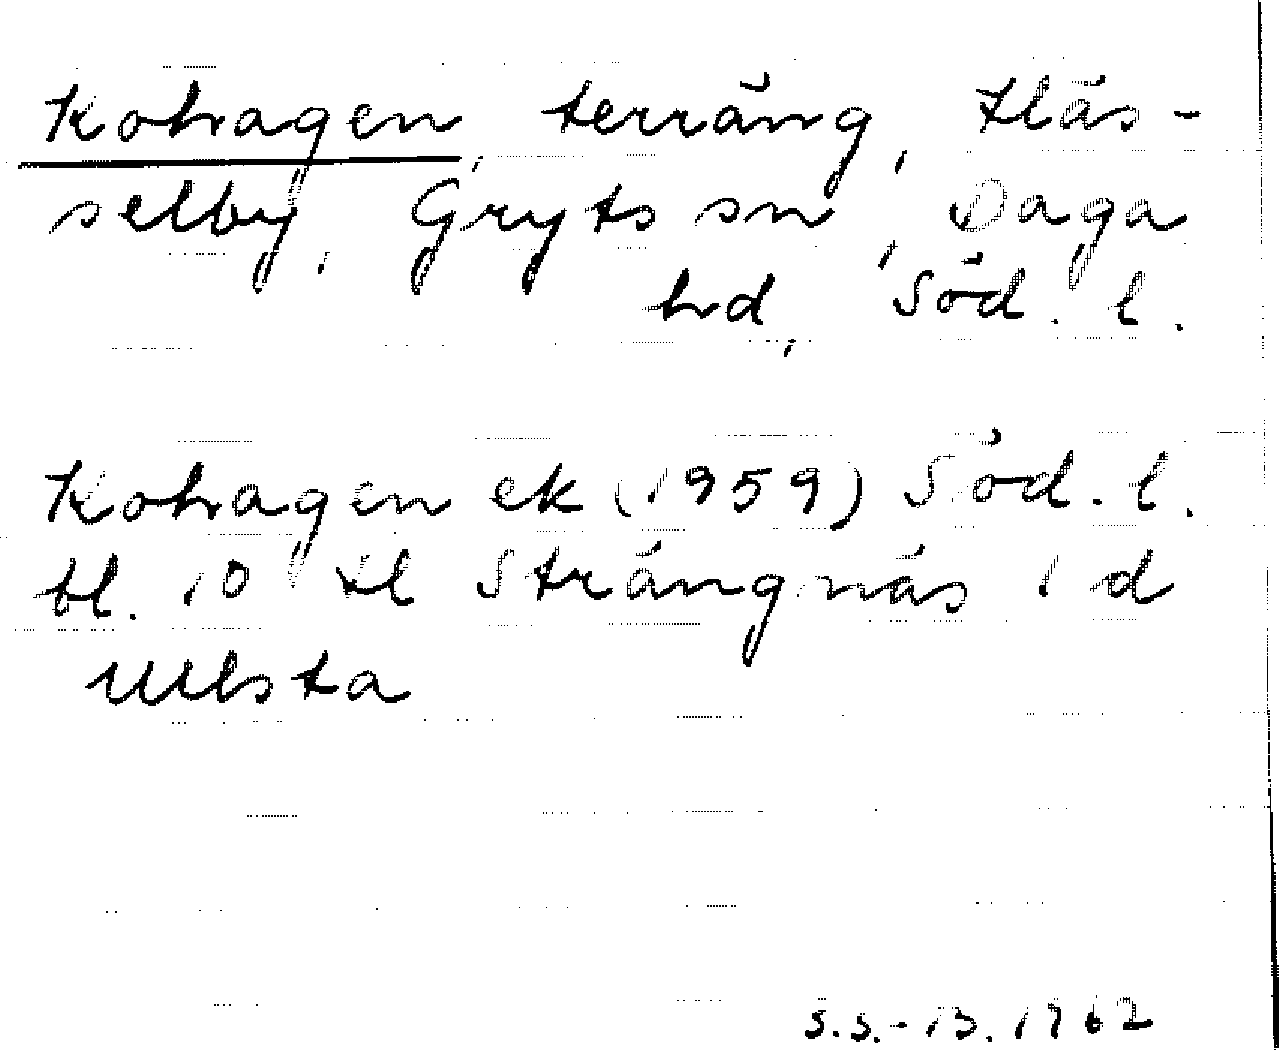 Kohagen, terräng, Häs-
selby, Gryts sn, Daga
hd, Söd. l.
Kohagen ek (1959) Söd. l.
bl. 10 til Strängnäs 1 d
Ullsta
S.S.-B. 1962